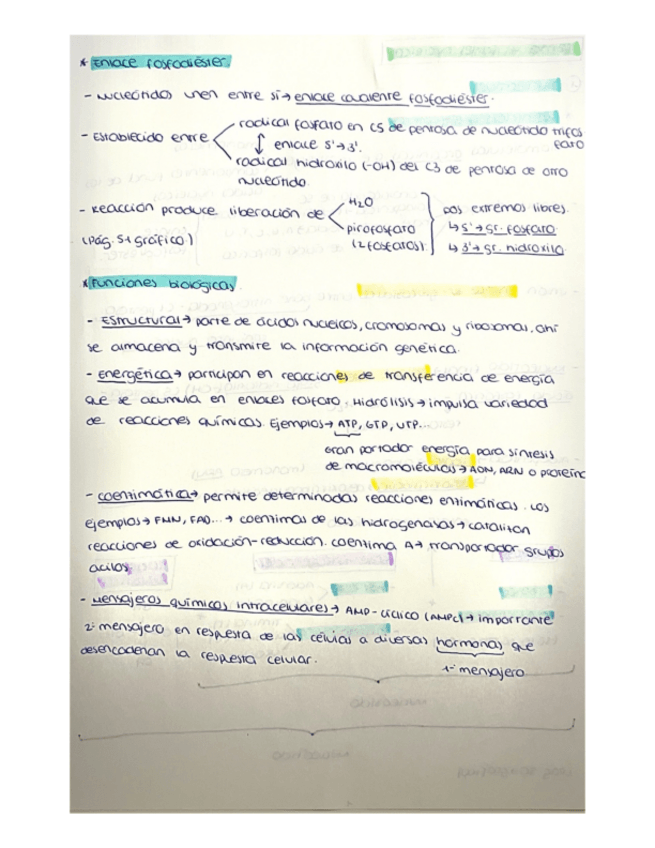 * Enlace fosfodiéster.
- Nucleótidos unen entre sí → enlace covalente fosfodiéster.
- Establecido entre
radical fosfato en C5 de pentosa de nucleótido trifosfato
↕ enlace 5'→3'.
radical hidroxilo (-OH) del C3 de pentosa de otro
nucleótido.
- Reacción produce liberación de
H2O
pirofosfato
(2 fosfatos)
Dos extremos libres.
↳ 5' → gr. fosfato
↳ 3' → gr. hidroxilo
(pág. 51 gráfico)
* Funciones biológicas.
- Estructural → parte de ácidos nucleicos, cromosomas y ribosomas, ahí
se almacena y transmite la información genética.
- Energética → participan en reacciones de transferencia de energía
que se acumula en enlaces fosfato. Hidrólisis → impulsa variedad
de reacciones químicas. Ejemplos → ATP, GTP, UTP...
Gran portador energía para síntesis
de macromoléculas → ADN, ARN o proteína
- Coenzimática → permite determinadas reacciones enzimáticas. Los
ejemplos → FMN, FAD... → coenzimas de las hidrogenasas → catalizan
reacciones de oxidación-reducción. Coenzima A → transportador grupos
acilos.
- Mensajeros químicos intracelulares → AMP-cíclico (AMPc) → importante
2º mensajero en respuesta de las células a diversas hormonas que
desencadenan la respuesta celular.
1º mensajero